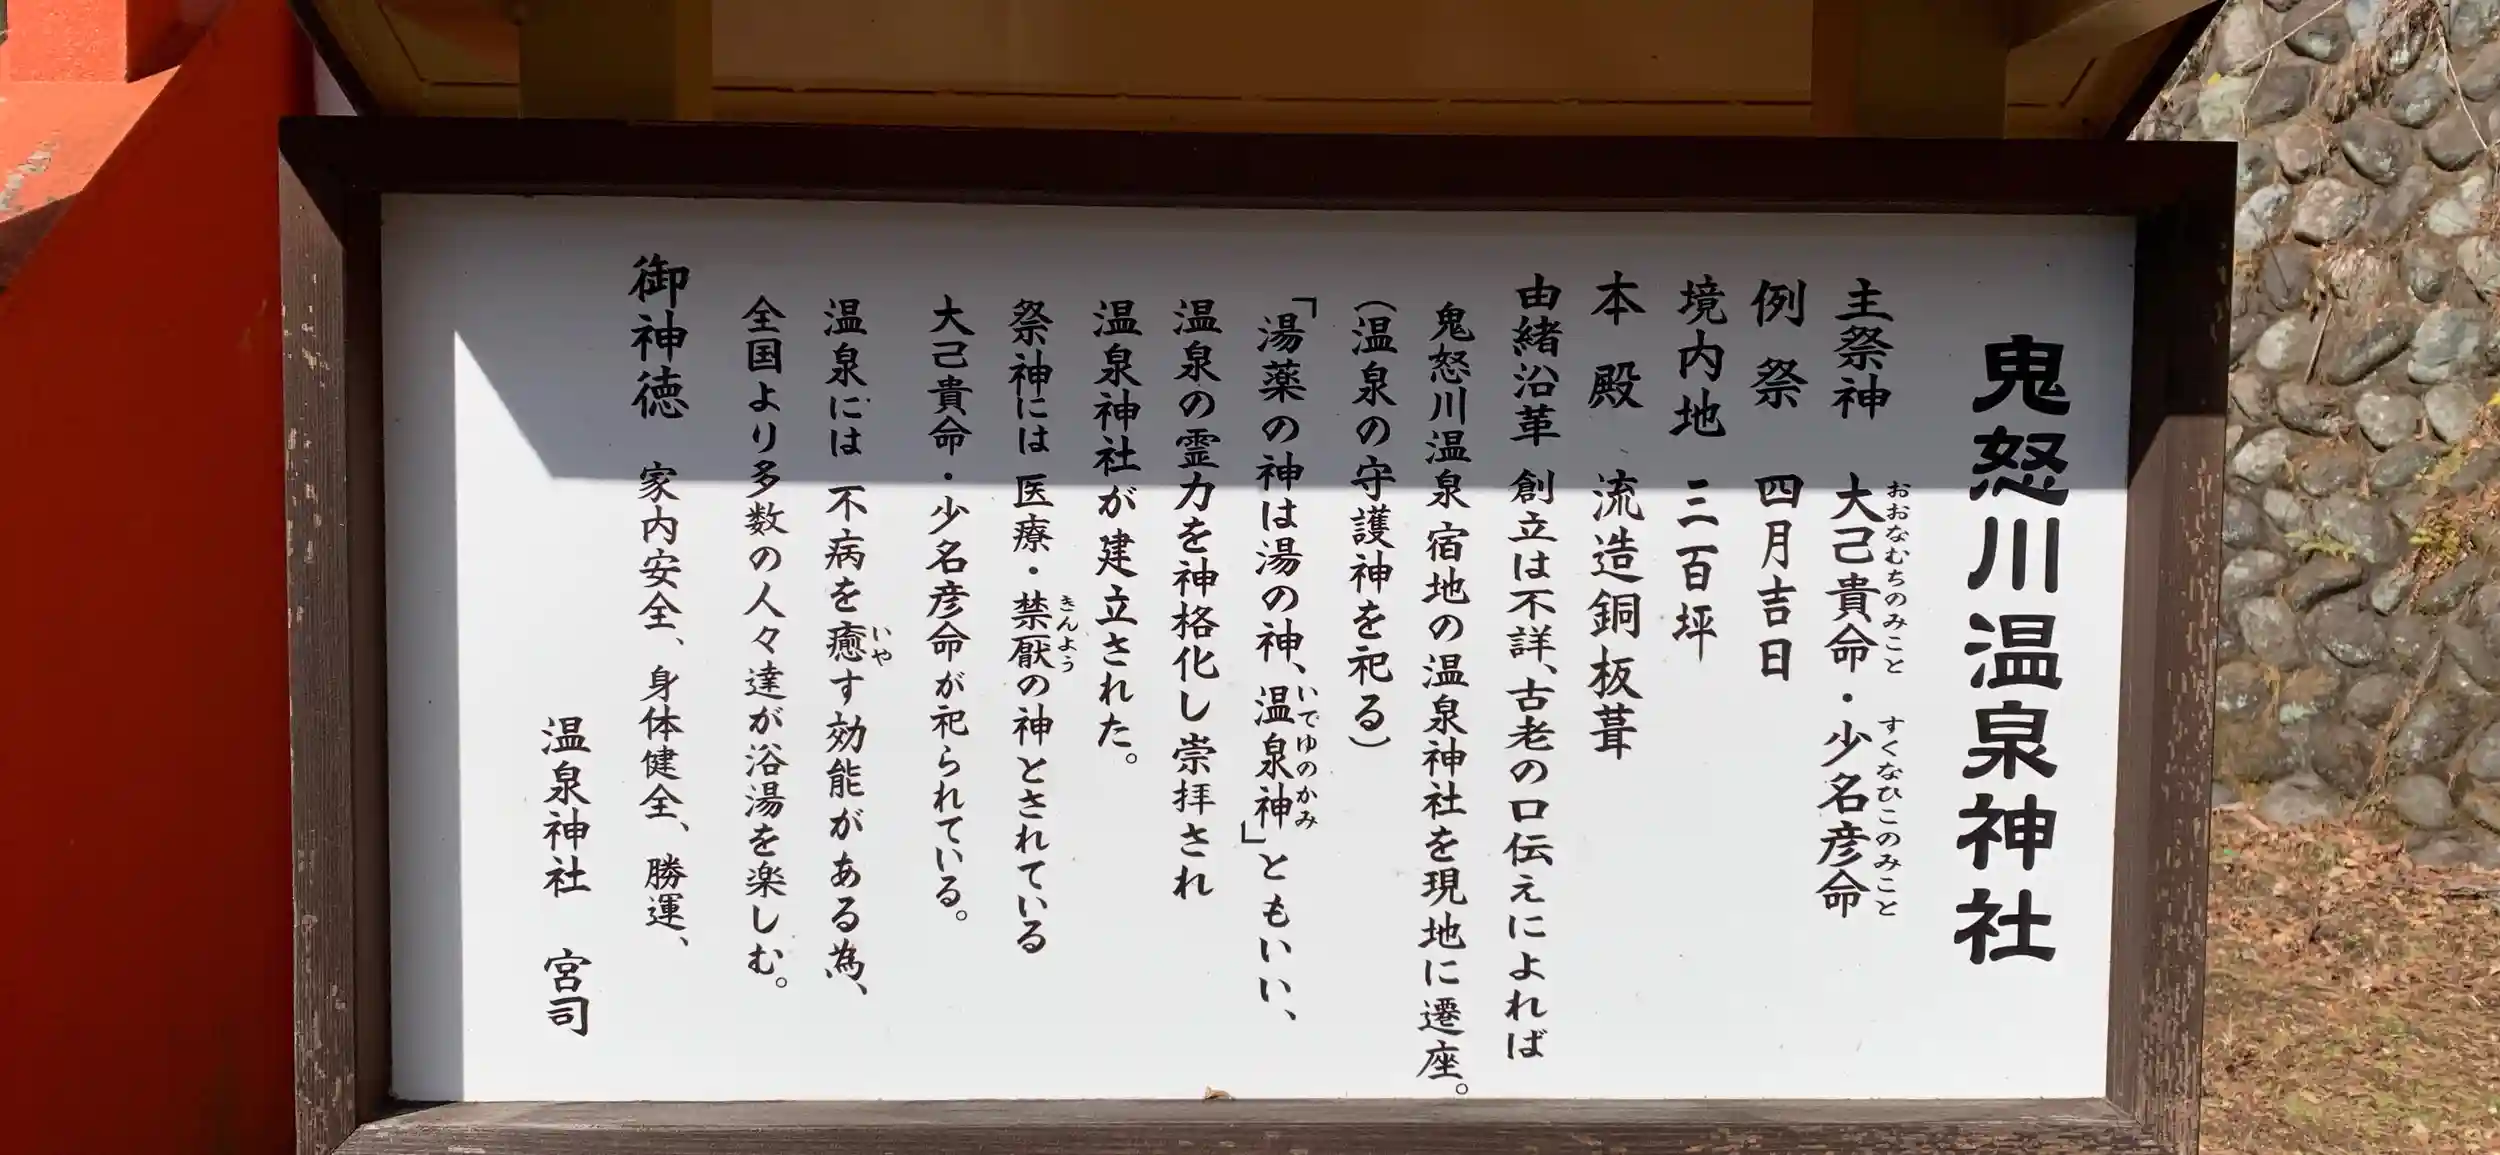 鬼怒川温泉神社
主祭神 大己貴命・少名彦命
おおなむちのみこと すくなひこのみこと
例祭 四月吉日
境内地 三百坪
本殿 流造銅板葺
由緒沿革 創立は不詳、古老の口伝えによれば
鬼怒川温泉 宿地の温泉神社を現地に遷座。
(温泉の守護神を祀る)
「湯薬の神は湯の神、温泉神」ともいい、
いでゆのかみ
温泉の霊力を神格化し崇拝され
温泉神社が建立された。
祭神には 医療・禁厭の神とされている
きんよう
大己貴命・少名彦命が祀られている。
温泉には 不病を癒す効能がある為、
いや
全国より多数の人々達が浴湯を楽しむ。
御神徳 家内安全、身体健全、勝運、
温泉神社 宮司